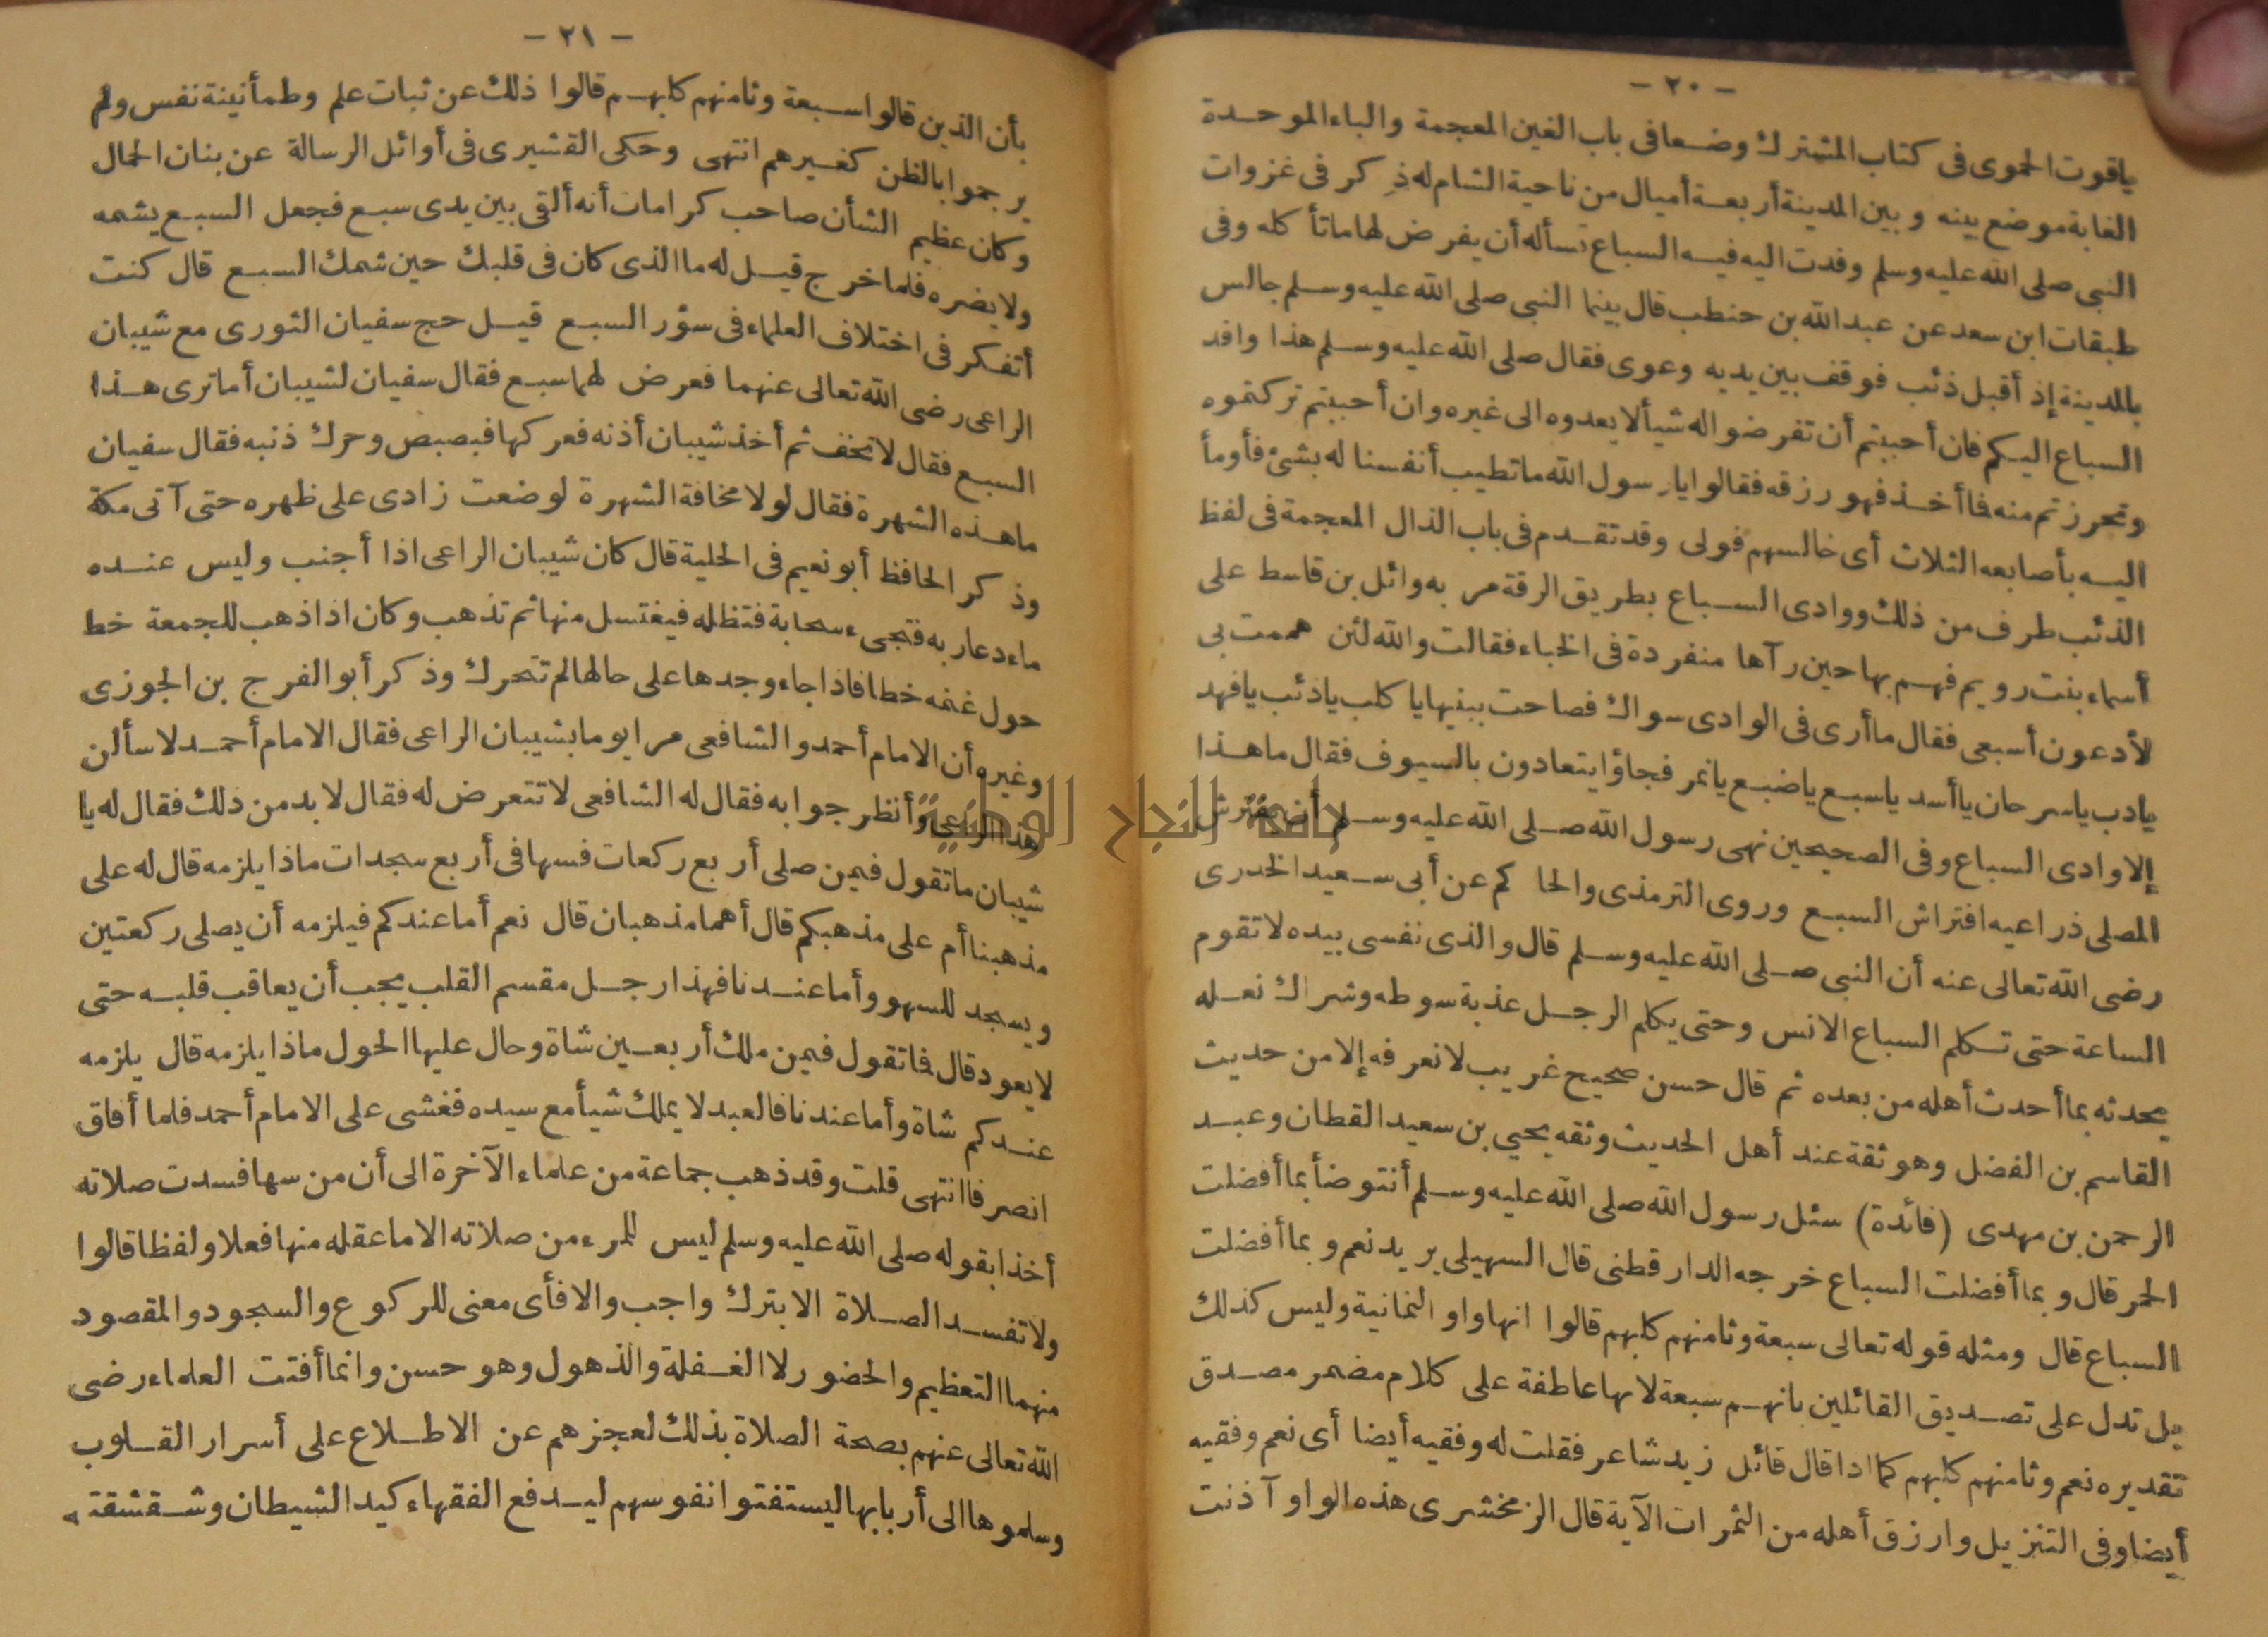 - ٢٠ -
ياقوت الحموى فى كتاب المشترك وضعا فى باب الغين المعجمة والباء الموحدة
الغابة موضع بينه وبين المدينة أربعة أميال من ناحية الشام له ذكر فى غزوات
النبى صلى الله عليه وسلم وفدت اليه فيه السباع تسأله أن يفرض لها ما تأكله وفى
طبقات ابن سعد عن عبد الله بن حنطب قال بينما النبى صلى الله عليه وسلم جالس
بالمدينة إذ أقبل ذئب فوقف بين يديه وعوى فقال صلى الله عليه وسلم هذا وافد
السباع اليكم فان أحببتم أن تفرضوا له شيأ لا يعدوه الى غيره وان أحببتم تركتموه
وتحرزتم منه فما أخذ فهو رزقه فقالوا يا رسول الله ما تطيب أنفسنا له بشئ فأومأ
اليه بأصابعه الثلاث أى خالسهم فولى وقد تقدم فى باب الذال المعجمة فى لفظ
الذئب طرف من ذلك ووادى السباع بطريق الرقة مر به وائل بن قاسط على
أسماء بنت رويم فهم بها حين رآها منفردة فى الخباء فقالت والله لئن هممت بى
لأدعون أسبعى فقال ما أرى فى الوادى سواك فصاحت ببنيها يا كلب يا ذئب يا فهد
يا دب يا سرحان يا أسد يا سبع يا ضبع يا نمر فجاؤا يتعادون بالسيوف فقال ما هذا
إلا وادى السباع وفى الصحيحين نهى رسول الله صلى الله عليه وسلم أن يفترش
المصلى ذراعيه افتراش السبع وروى الترمذى والحاكم عن أبى سعيد الخدرى
رضى الله تعالى عنه أن النبى صلى الله عليه وسلم قال والذى نفسى بيده لا تقوم
الساعة حتى تكلم السباع الانس وحتى يكلم الرجل عذبة سوطه وشراك نعله
يحدثه بما أحدث أهله من بعده ثم قال حسن صحيح غريب لا نعرفه إلا من حديث
القاسم بن الفضل وهو ثقة عند أهل الحديث وثقه يحيي بن سعيد القطان وعبد
الرحمن بن مهدى (فائدة) سئل رسول الله صلى الله عليه وسلم أنتوضأ بما أفضلت
الحمر قال وبما أفضلت السباع خرجه الدارقطنى قال السهيلى يريد نعم وبما أفضلت
السباع قال ومثله قوله تعالى سبعة وثامنهم كلبهم قالوا انها واو الثمانية وليس كذلك
بل تدل على تصديق القائلين بانهم سبعة لانها عاطفة على كلام مضمر مصدق
تقديره نعم وثامنهم كلبهم كما اذا قال قائل زيد شاعر فقلت له وفقيه أيضا أى نعم وفقيه
أيضا وفى التنزيل وارزق أهله من الثمرات الآية قال الزمخشرى هذه الواو آذنت
- ٢١ -
بأن الذين قالوا سبعة وثامنهم كلبهم قالوا ذلك عن ثبات علم وطمأنينة نفس ولم
يرجموا بالظن كغيرهم انتهى وحكى القشيرى فى أوائل الرسالة عن بنان الحمال
وكان عظيم الشأن صاحب كرامات أنه ألقى بين يدى سبع فجعل السبع يشمه
ولا يضره فلما خرج قيل له ما الذى كان فى قلبك حين شمك السبع قال كنت
أتفكر فى اختلاف العلماء فى سؤر السبع قيل حج سفيان الثورى مع شيبان
الراعى رضى الله تعالى عنهما فعرض لهما سبع فقال سفيان لشيبان أما ترى هذا
السبع فقال لا تخف ثم أخذ شيبان أذنه فعركها فبصبص وحرك ذنبه فقال سفيان
ما هذه الشهرة فقال لولا مخافة الشهرة لوضعت زادى على ظهره حتى آتى مكة
وذكر الحافظ أبو نعيم فى الحلية قال كان شيبان الراعى اذا أجنب وليس عنده
ماء دعا ربه فتجىء سحابة فتظله فيغتسل منها ثم تذهب وكان اذا ذهب للجمعة خط
حول غنمه خطا فاذا جاء وجدها على حالها لم تتحرك وذكر أبو الفرج بن الجوزى
وغيره أن الامام أحمد والشافعى مرا يوما بشيبان الراعى فقال الامام أحمد لاسألن
هذا الراعى وأنظر جوابه فقال له الشافعى لا تتعرض له فقال لا بد من ذلك فقال له يا
شيبان ما تقول فيمن صلى أربع ركعات فسها فى أربع سجدات ماذا يلزمه قال له على
مذهبنا أم على مذهبكم قال أهما مذهبان قال نعم أما عندكم فيلزمه أن يصلى ركعتين
ويسجد للسهو وأما عندنا فهذا رجل مقسم القلب يجب أن يعاقب قلبه حتى
لا يعود قال فما تقول فيمن ملك أربعين شاة وحال عليها الحول ماذا يلزمه قال يلزمه
عندكم شاة وأما عندنا فالعبد لا يملك شيأ مع سيده فغشى على الامام أحمد فلما أفاق
انصرفا انتهى قلت وقد ذهب جماعة من علماء الآخرة الى أن من سها فسدت صلاته
أخذا بقوله صلى الله عليه وسلم ليس للمرء من صلاته الا ما عقله منها فعلا ولفظا قالوا
ولا تفسد الصلاة الا بترك واجب والا فأى معنى للركوع والسجود والمقصود
منهما التعظيم والحضور لا الغفلة والذهول وهو حسن وانما أفتت العلماء رضى
الله تعالى عنهم بصحة الصلاة بذلك لعجزهم عن الاطلاع على أسرار القلوب
وسلموها الى أربابها ليستفتوا نفوسهم ليدفع الفقهاء كيد الشيطان وشقشقته
جامعة النجاح الوطنية